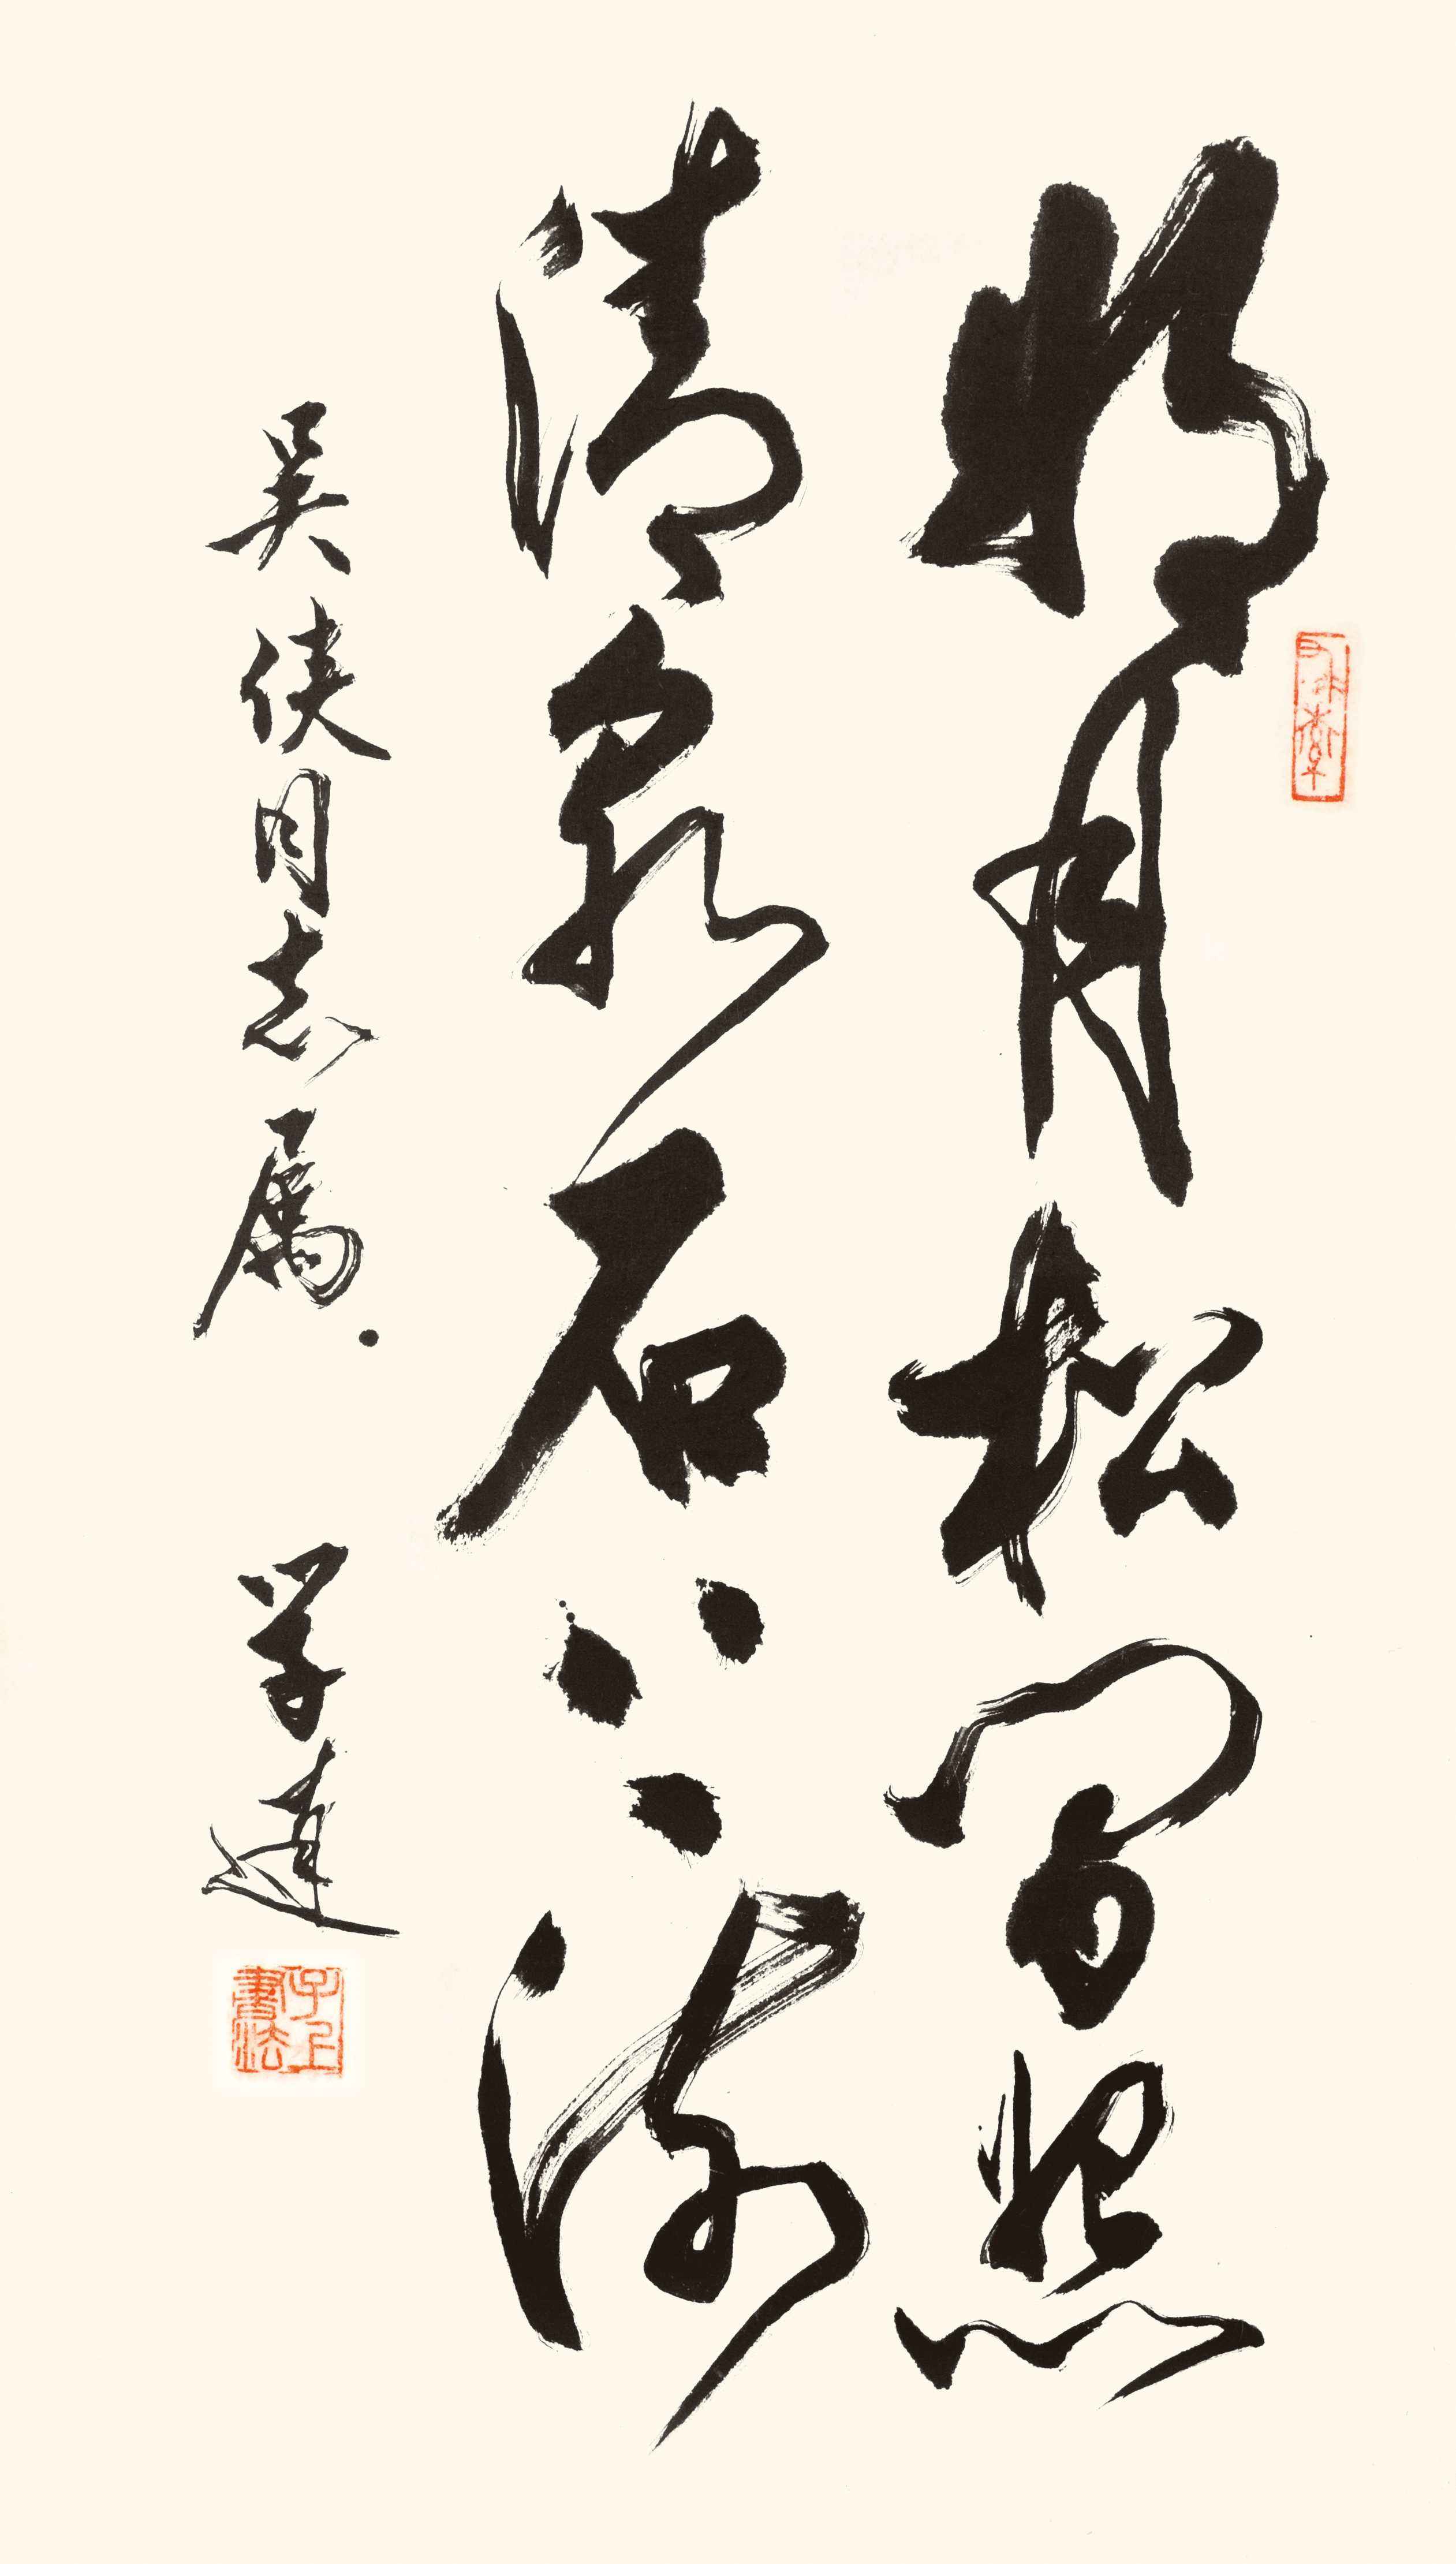 明月松间照
清泉石上流
吴侠同志属 学达
子上書法